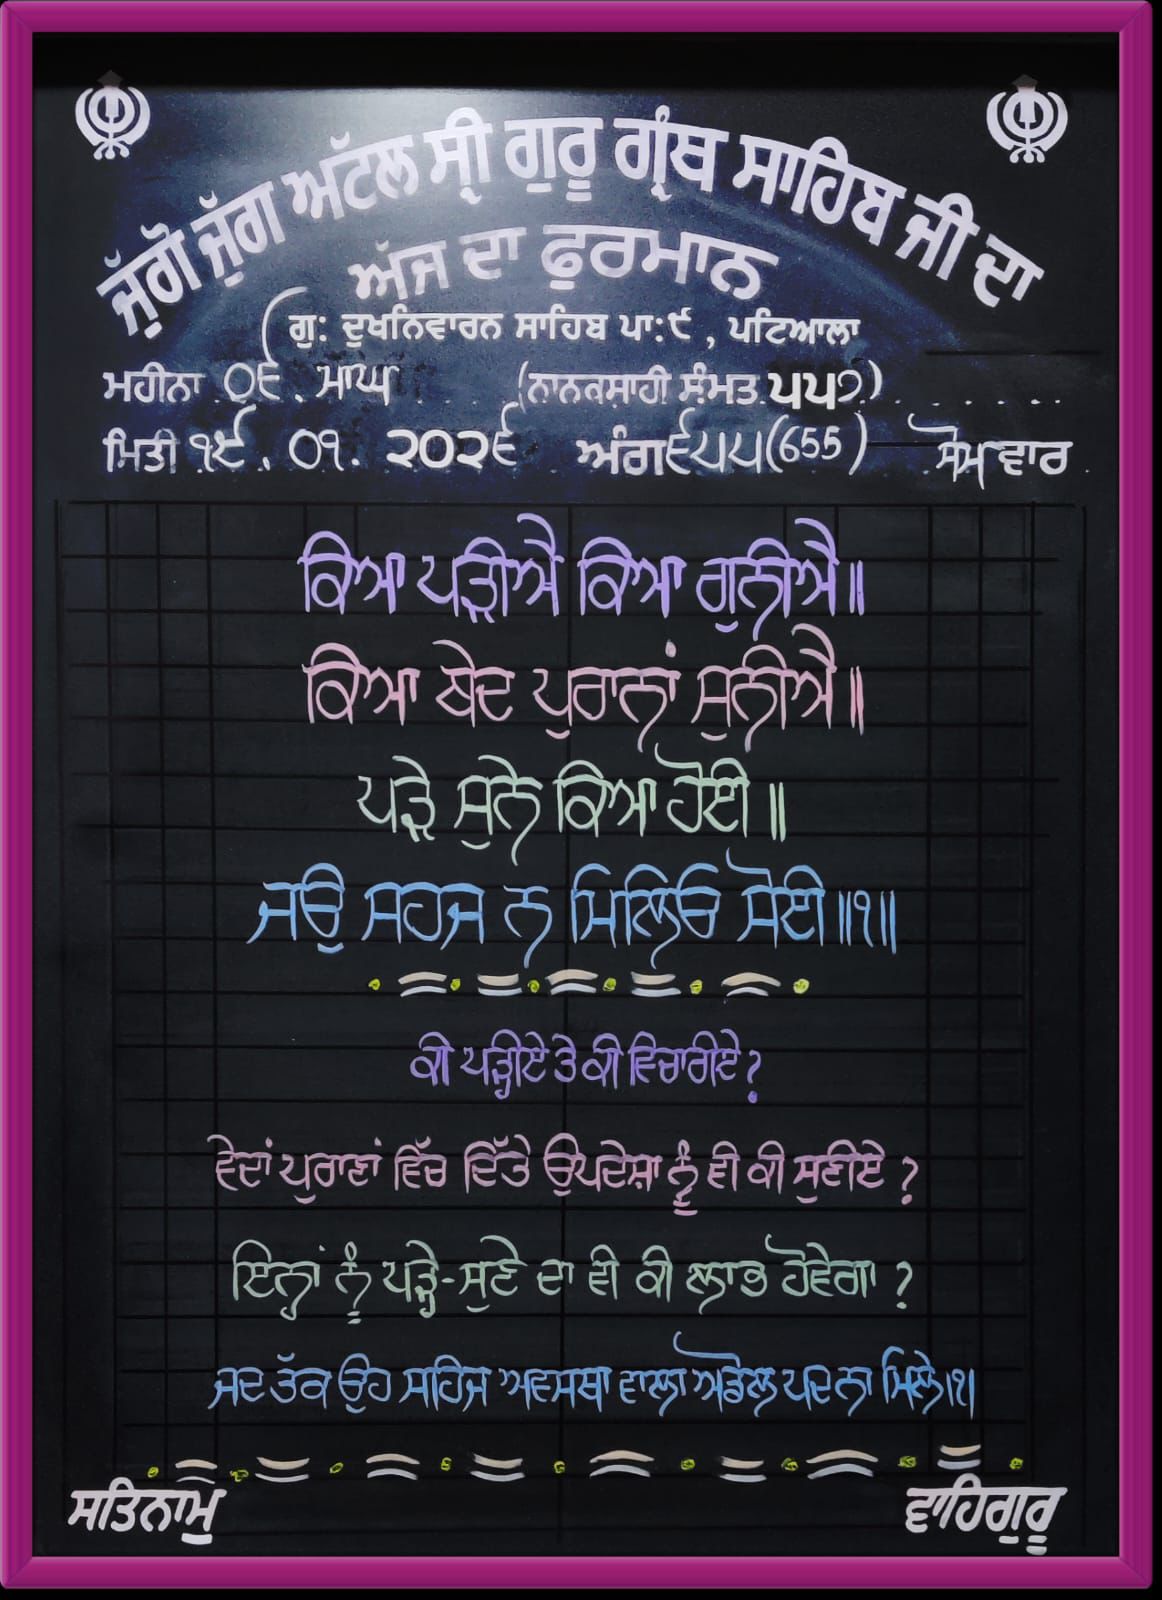 ਜੁੱਗੋ ਜੁੱਗ ਅੱਟਲ ਸ੍ਰੀ ਗੁਰੂ ਗ੍ਰੰਥ ਸਾਹਿਬ ਜੀ ਦਾ
ਅੱਜ ਦਾ ਫੁਰਮਾਨ
ਗੁ: ਦੁਖਨਿਵਾਰਨ ਸਾਹਿਬ ਪਾ:੯ , ਪਟਿਆਲਾ
ਮਹੀਨਾ ੦੬ . ਮਾਘ (ਨਾਨਕਸਾਹੀ ਸੰਮਤ ੫੫੭)
ਮਿਤੀ ੧੯. ੦੧. ੨੦੨੬ ਅੰਗ ੬੫੫(655) ਸੋਮ ਵਾਰ
ਕਿਆ ਪੜੀਐ ਕਿਆ ਗੁਨੀਐ॥
ਕਿਆ ਬੇਦ ਪੁਰਾਨਾਂ ਸੁਨੀਐ॥
ਪੜੇ ਸੁਨੇ ਕਿਆ ਹੋਈ ॥
ਜਉ ਸਹਜ ਨ ਮਿਲਿਓ ਸੋਈ॥੧॥
ਕੀ ਪੜ੍ਹੀਏ ਤੇ ਕੀ ਵਿਚਾਰੀਏ?
ਵੇਦਾਂ ਪੁਰਾਣਾਂ ਵਿੱਚ ਦਿੱਤੇ ਉਪਦੇਸ਼ਾ ਨੂੰ ਵੀ ਕੀ ਸੁਣੀਏ ?
ਇਨ੍ਹਾਂ ਨੂੰ ਪੜ੍ਹੇ-ਸੁਣੇ ਦਾ ਵੀ ਕੀ ਲਾਭ ਹੋਵੇਗਾ ?
ਜਦ ਤੱਕ ਉਹ ਸਹਿਜ ਅਵਸਥਾ ਵਾਲਾ ਅਡੋਲ ਪਦ ਨਾ ਮਿਲੇ।੧।
ਸਤਿਨਾਮੁ ਵਾਹਿਗੁਰੂ